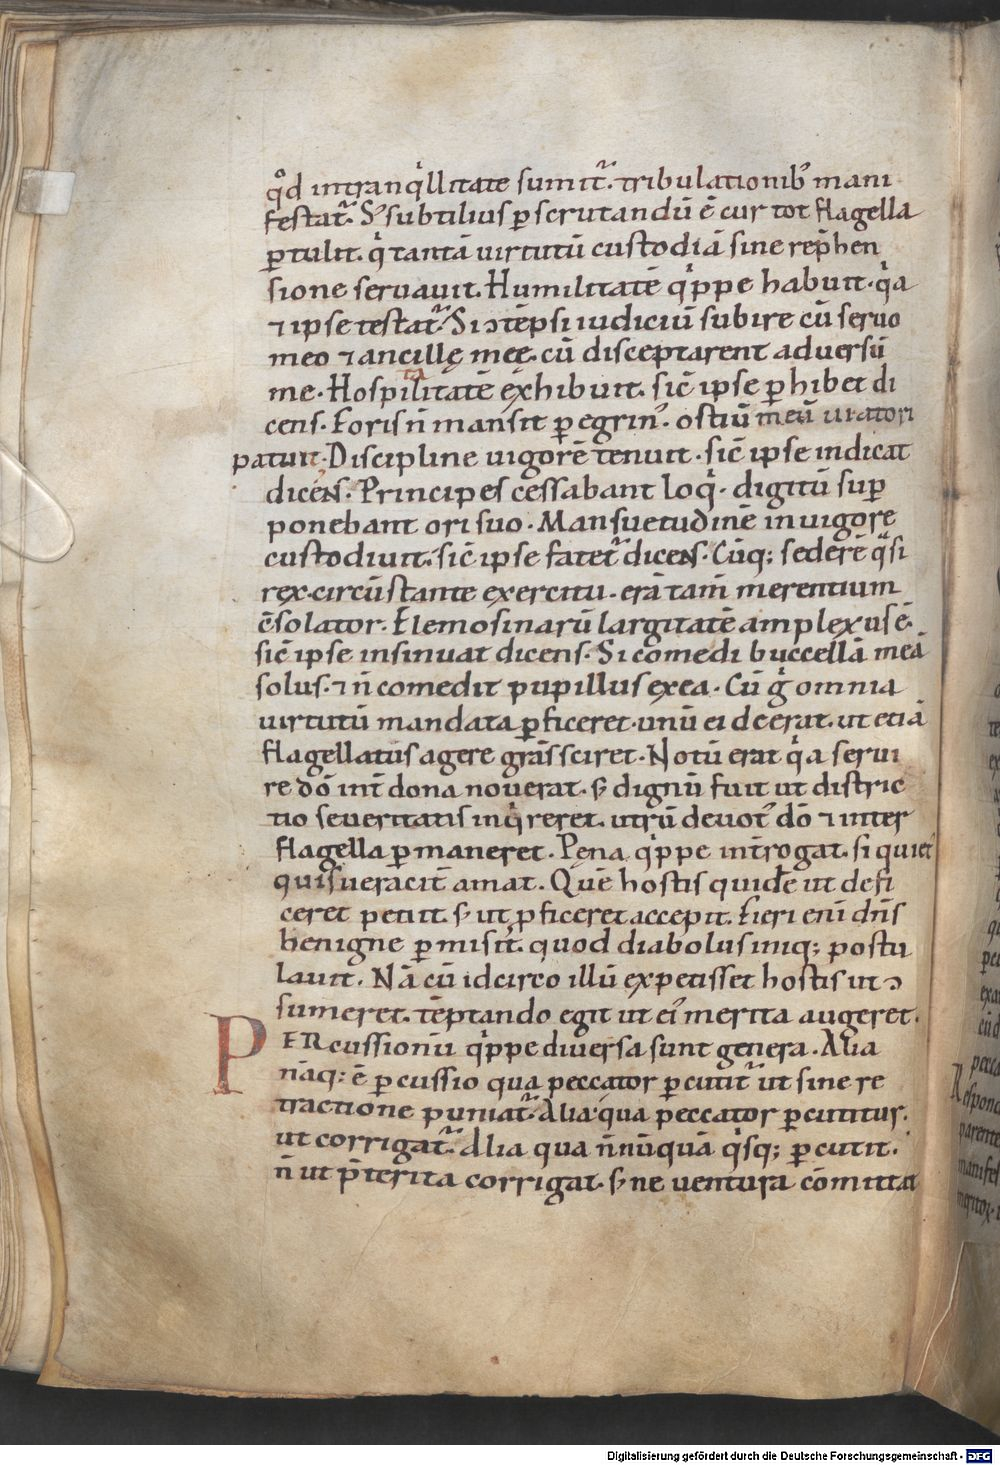 qͦd intranqͥllitate sumit᷑. tribulationibꝰ mani
festat᷑. Sꝫ subtilius ꝑscrutandū ē cur tot flagella
ꝑtulit. qͥ tantā uirtutū custodiā sine rep̄hen
sione seruauit. Humilitatē qͥppe habuit. qͥa
⁊ ipse testat᷑. Si ↄtēpsi iudiciū subire cū seruo
meo ⁊ ancillę meę. cū disceptarent aduersū
me. Hospitalitatē exhibuit. sic̄ ipse ꝑhibet di
cens. Foris n̄ mansit ꝑegrinꝰ. ostiū meū uiatori
patuit. Discipline uigorē tenuit. sic̄ ipse indicat
dicens. Principes cessabant loqͥ. digitū suꝑ
ponebant ori suo. Mansuetudinē in uigore
custodiuit. sic̄ ipse fatet᷑ dicens. Cūq; sederē qͣsi
rex. circūstante exercitu. erā tam̄ merentium
ↄ̄solator. Elemosinarū largitatē amplexus ē.
sic̄ ipse insinuat dicens. Si comedi buccellā meā
solus. ⁊ n̄ comedit pupillus ex ea. Cū gͦ omnia
uirtutū mandata ꝑficeret. unū ei deerat. ut etiā
flagellatus agere grās sciret. Notū erat qͥa serui
re dō int̄ dona nouerat. sꝫ dignū fuit ut distric
tio seueritatis inqͥreret. utrū deuotꝰ dō ⁊ inter
flagella ꝑmaneret. Pena qͥppe int̄rogat. si quiet᷑
quis ueracit̄ amat. Quē hostis quidē ut defi
ceret petiit. sꝫ ut ꝓficeret accepit. Fieri enī dn̄s
benigne ꝑmisit. quod diabolus iniq; postu
lauit. Nā cū idcirco illū expetisset hostis ut ↄ
sumeret. tēptando egit ut eiꝰ merita augeret.
PERcussionū qͥppe diuersa sunt genera. Alia
nāq; ē ꝑcussio qua peccator ꝑcutit᷑ ut sine re
tractione puniat᷑. Alia qua peccator ꝑcutitur.
ut corrigat᷑. Alia qua n̄nūquā qͥsq; ꝑcutit᷑.
n̄ ut p̄terita corrigat. sꝫ ne uentura cōmittat
Digitalisierung gefördert durch die Deutsche Forschungsgemeinschaft - DFG